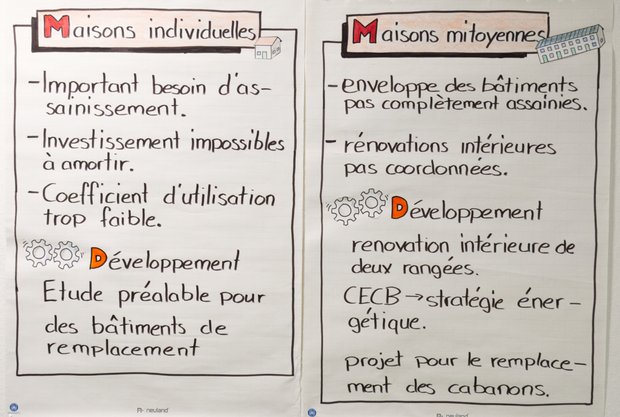 Maisons individuelles
-Important besoin d'as-
sainissement.
-Investissement impossibles
à amortir.
-Coefficient d'utilisation
trop faible.
Développement
Etude préalable pour
des bâtiments de
remplacement
neuland
Maisons mitoyennes
-enveloppe des bâtiments
pas complètement assainies.
- rénovations intérieures
pas coordonnées.
Développement
renovation intérieure de
deux rangées.
CECB→stratégie éner-
gétique.
projet pour le remplace-
ment des cabanons.
neuland